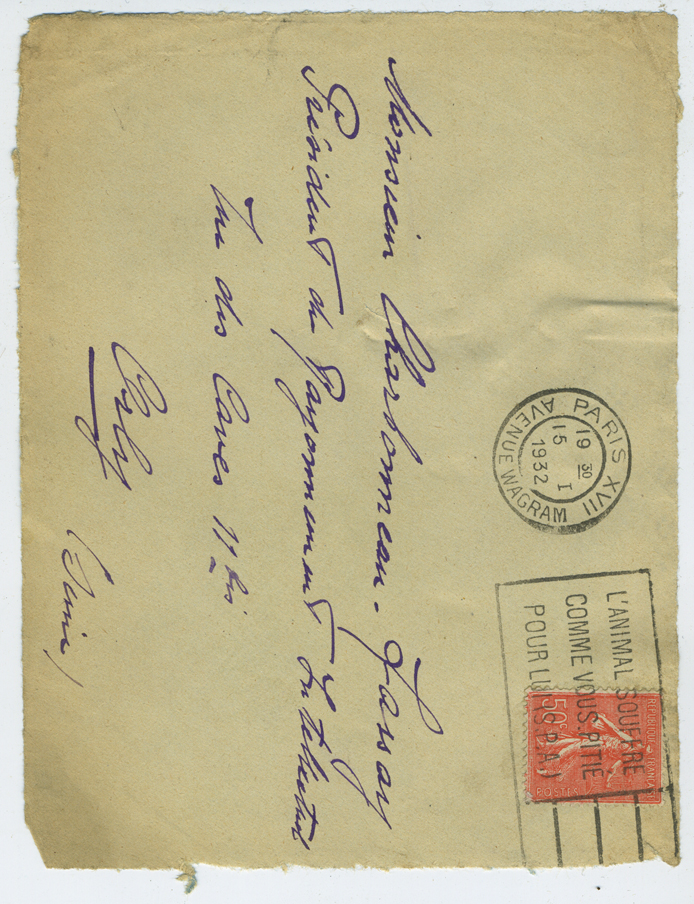 PARIS XVII
19 30
15 I
1932
AVENUE WAGRAM
L'ANIMAL SOUFFRE
COMME VOUS PITIE
POUR LUI (S.P.A.)
REPUBLIQUE FRANÇAISE
50c
POSTES
Monsieur Charbonneau. Lassay
Président du Rayonnement Intellectuel
Rue des Caves 11 bis
Orly
(Seine)